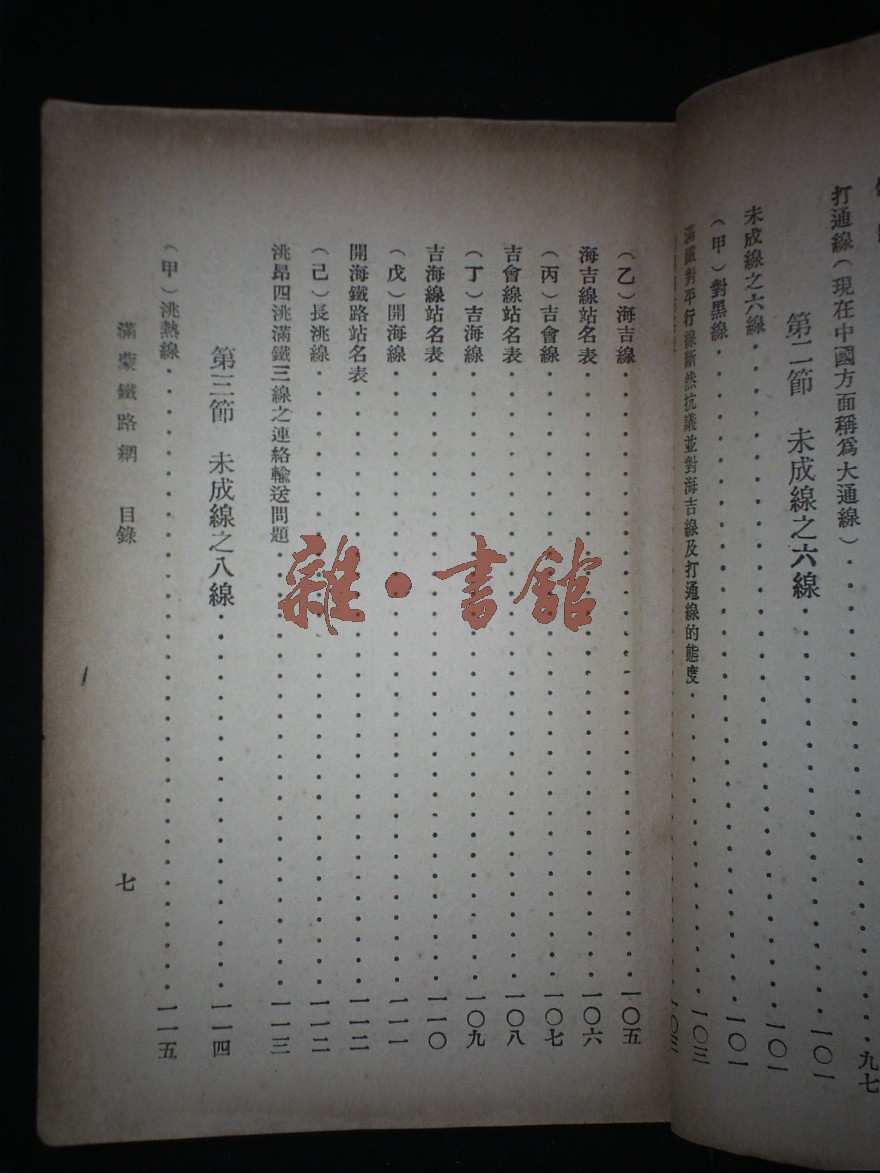 打通線（現在中國方面稱爲大通線）・・・九七
第二節　未成線之六線・・・一〇一
未成線之六線・・・一〇一
（甲）對黑線・・・一〇一
滿鐵對平行線斷然抗議並對海吉線及打通線的態度・・・一〇三
（乙）海吉線・・・一〇五
海吉線站名表・・・一〇六
（丙）吉會線・・・一〇七
吉會線站名表・・・一〇八
（丁）吉海線・・・一〇九
吉海線站名表・・・一一〇
（戊）開海線・・・一一一
開海鐵路站名表・・・一一二
（己）長洮線・・・一一二
洮昂四洮滿鐵三線之連絡輸送問題・・・一一三
第三節　未成線之八線・・・一一四
（甲）洮熱線・・・一一五
滿蒙鐵路網　目錄
七
雜・書館